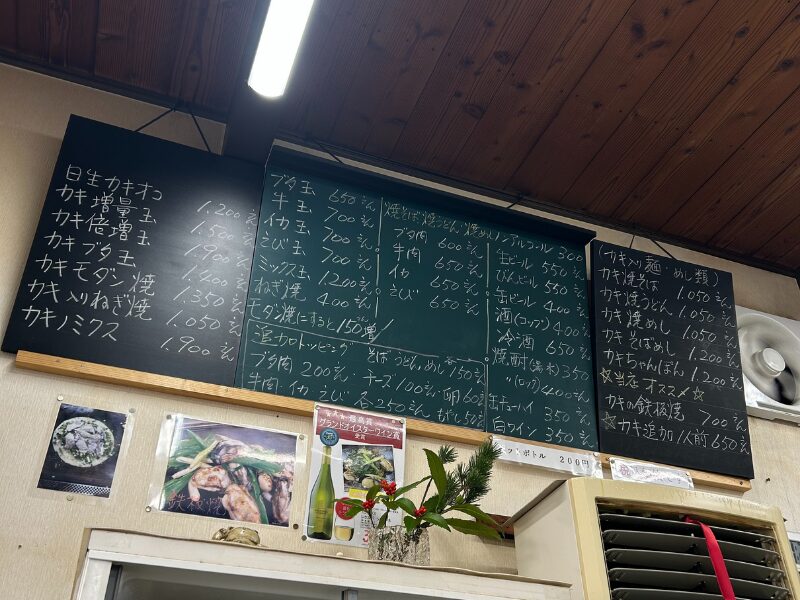 日生カキオコ 1.200えん
カキ増量玉 1.500えん
カキ倍増玉 1.900えん
カキブタ玉 1.400えん
カキモダン焼 1.350えん
カキ入りねぎ焼 1.050えん
カキノミクス 1.900えん
ブタ玉 650えん
牛玉 700えん
イカ玉 700えん
えび玉 700えん
ミックス玉 1.200えん
ねぎ焼 400えん
モダン焼にすると150増!
焼そば 焼うどん 焼めし
ブタ肉 600えん
牛肉 650えん
イカ 650えん
えび 650えん
追加トッピング
そば うどん めし 各150えん
ブタ肉 200えん チーズ 100えん 卵 60えん
牛肉・イカ えび 各250えん
ノンアルコール 300
生ビール 550えん
びんビール 550えん
缶ビール 400えん
酒(コップ) 400えん
冷酒 650えん
焼酎 350えん
400えん
缶チューハイ 350えん
白ワイン 350えん
(カキ入り麺・めし類)
カキ焼そば 1.050えん
カキ焼うどん 1.050えん
カキ焼めし 1.050えん
カキそばめし 1.200えん
カキちゃんぽん 1.200えん
☆当店オススメ☆
カキの鉄板焼 900えん
☆カキ追加1人前650えん
ボトル 200円
最高賞
グランドオイスターワイン賞
受賞
鉄板焼